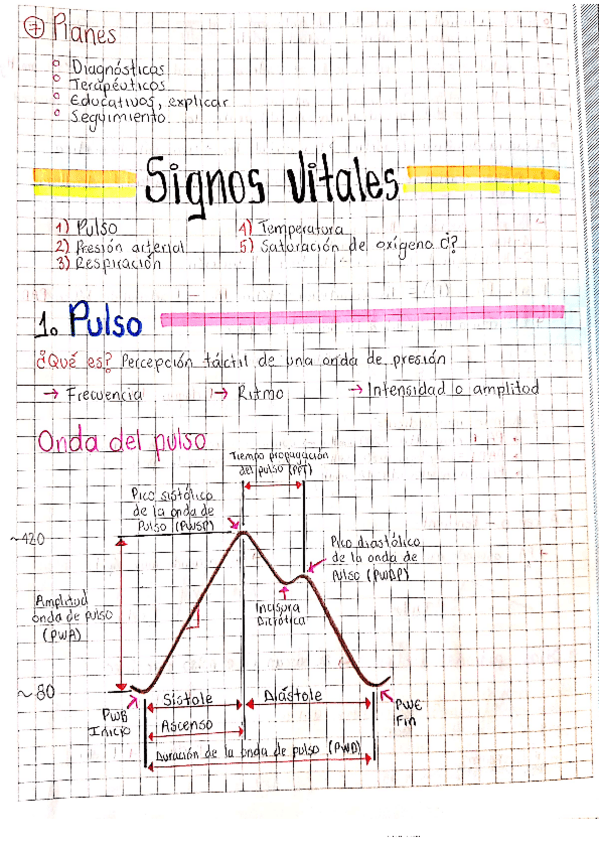 7 Planes
Diagnósticos
Terapéuticos
Educativos, explicar
Seguimiento.
Signos vitales
1) Pulso
2) Presión arterial
3) Respiración
4) Temperatura
5) Saturación de oxígeno c?
1. Pulso
¿Qué es? Percepción táctil de una onda de presión
→ Frecuencia → Ritmo → Intensidad o amplitud
Onda del pulso
Tiempo propagación
del pulso (PPT)
Pico sistólico
de la onda de
Pulso (PWSP)
~120
Pico diastólico
de la onda de
Pulso (PWDP)
Incisura
Dicrótica
Amplitud
onda de pulso
(PWA)
~80
Sístole
Diástole
PWB
Inicio
Ascenso
PWE
Fin
Duración de la onda de pulso (PWD)